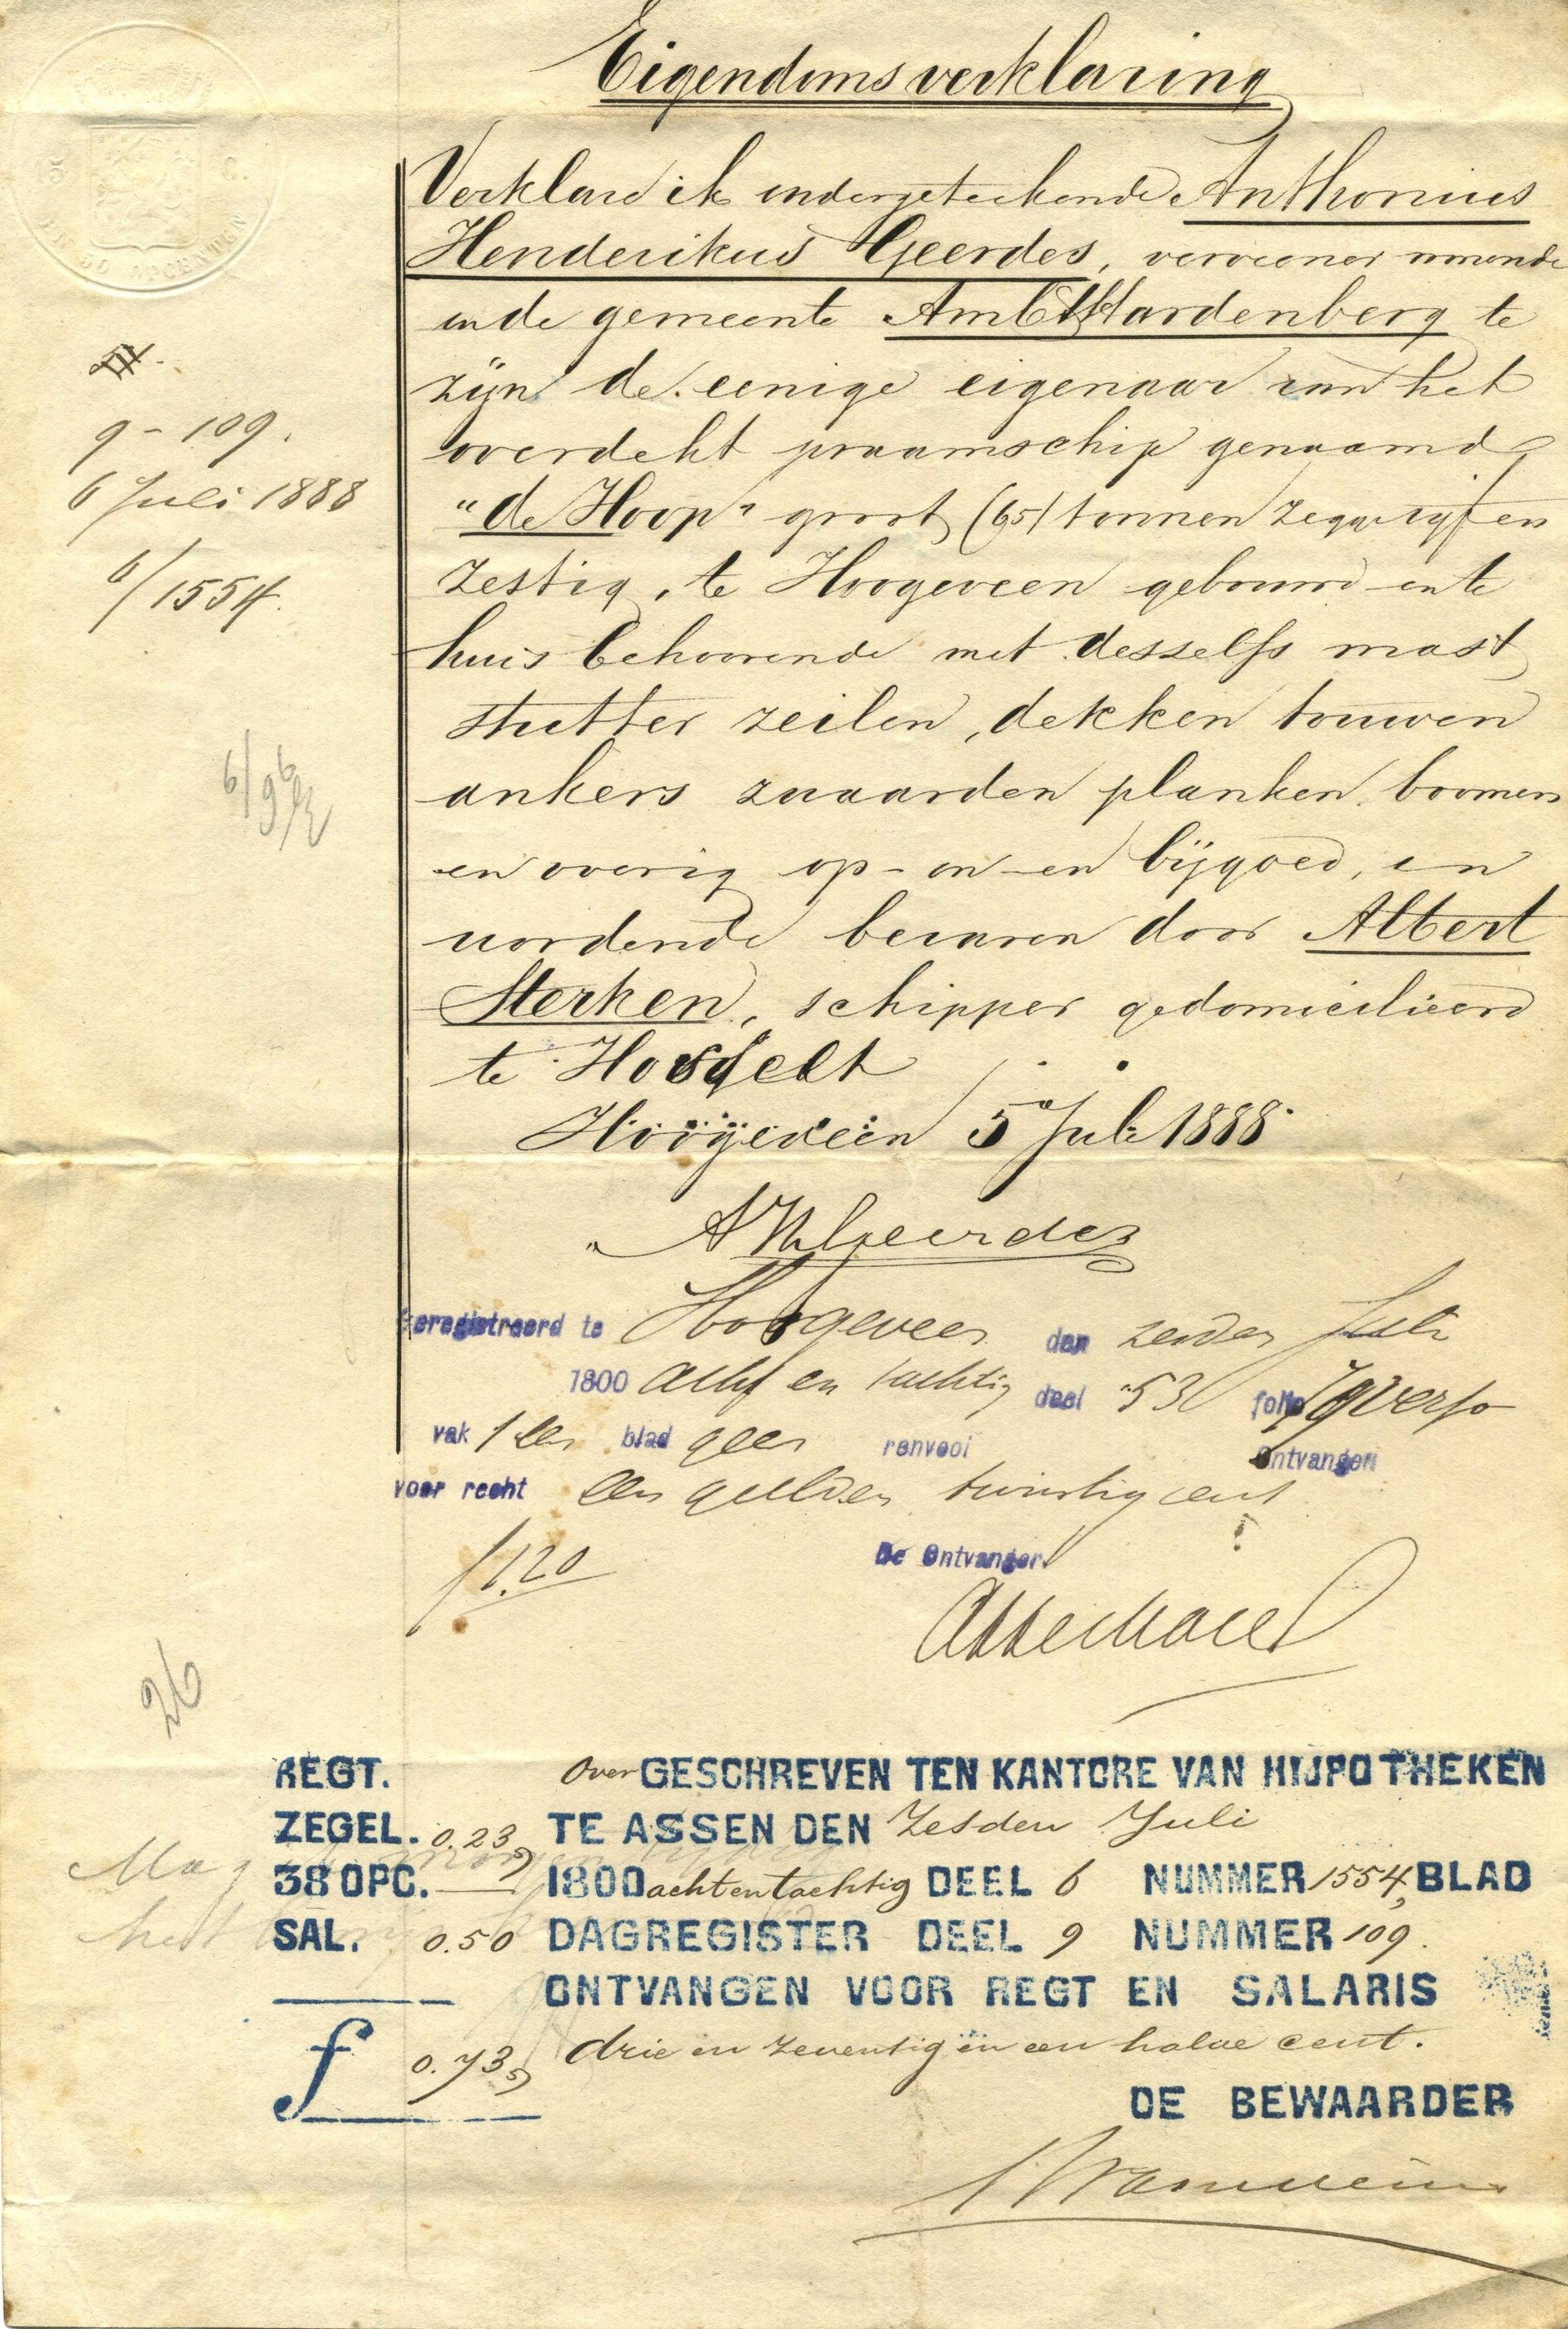 Eigendoms verklaring
Verklare ik ondergeteekende Anthonius
Henderikus Geerdes, verveener wonende
in de gemeente Ambt Hardenberg te
zijn de eenige eigenaar van het
overdekt praamschip genaamd
"de Hoop" groot (65) tonnen zegge vijf en
zestig, te Hoogeveen gebouwd en te
huis behoorende met desselfs mast
zeilen, dekken touwen
ankers zwaarden planken, boomen
en overig op- an- en bijgoed, en
wordende bevaren door Albert
Sterken, schipper gedomicilieerd
te
Hoogeveen 5 Juli 1888
AHGeerdes
9 - 109.
6 Juli 1888
6/1554.
Geregistreerd te Hoogeveen den zesden Juli
1800 acht en tachtig deel 53 folio verso
vak 1 een blad geen renvooi Ontvangen
voor recht een gulden twintig cent
f 1.20
De Ontvanger
26
REGT. over GESCHREVEN TEN KANTORE VAN HIJPOTHEKEN
ZEGEL. 0.23 5 TE ASSEN DEN Zesden Juli
38 OPC. — 1800 achtentachtig DEEL 6 NUMMER 1554, BLAD
SAL. 0.50 DAGREGISTER DEEL 9 NUMMER 109.
ONTVANGEN VOOR REGT EN SALARIS
f 0.73 5 drie en zeventig en een halve cent.
DE BEWAARDER